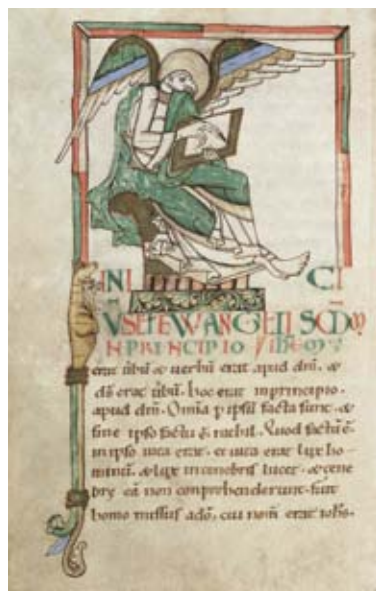 INI CI
EWANGELII SCDM
NPRINCIPIO
erat ūbū & uerbū erat apud dm̄. &
ds̄ erat ūbū. hoc erat inprincipio.
apud dm̄. Omīa p ipsū facta sunt. &
sine ipso factū ē nichil. Quod factū ē.
in ipso uita erat. et uita erat lux ho
minū. & lux intenebris lucet. & tene
bre eā non conprehenderunt. fuit
homo missus adō, cui nom̄ erat iohs.